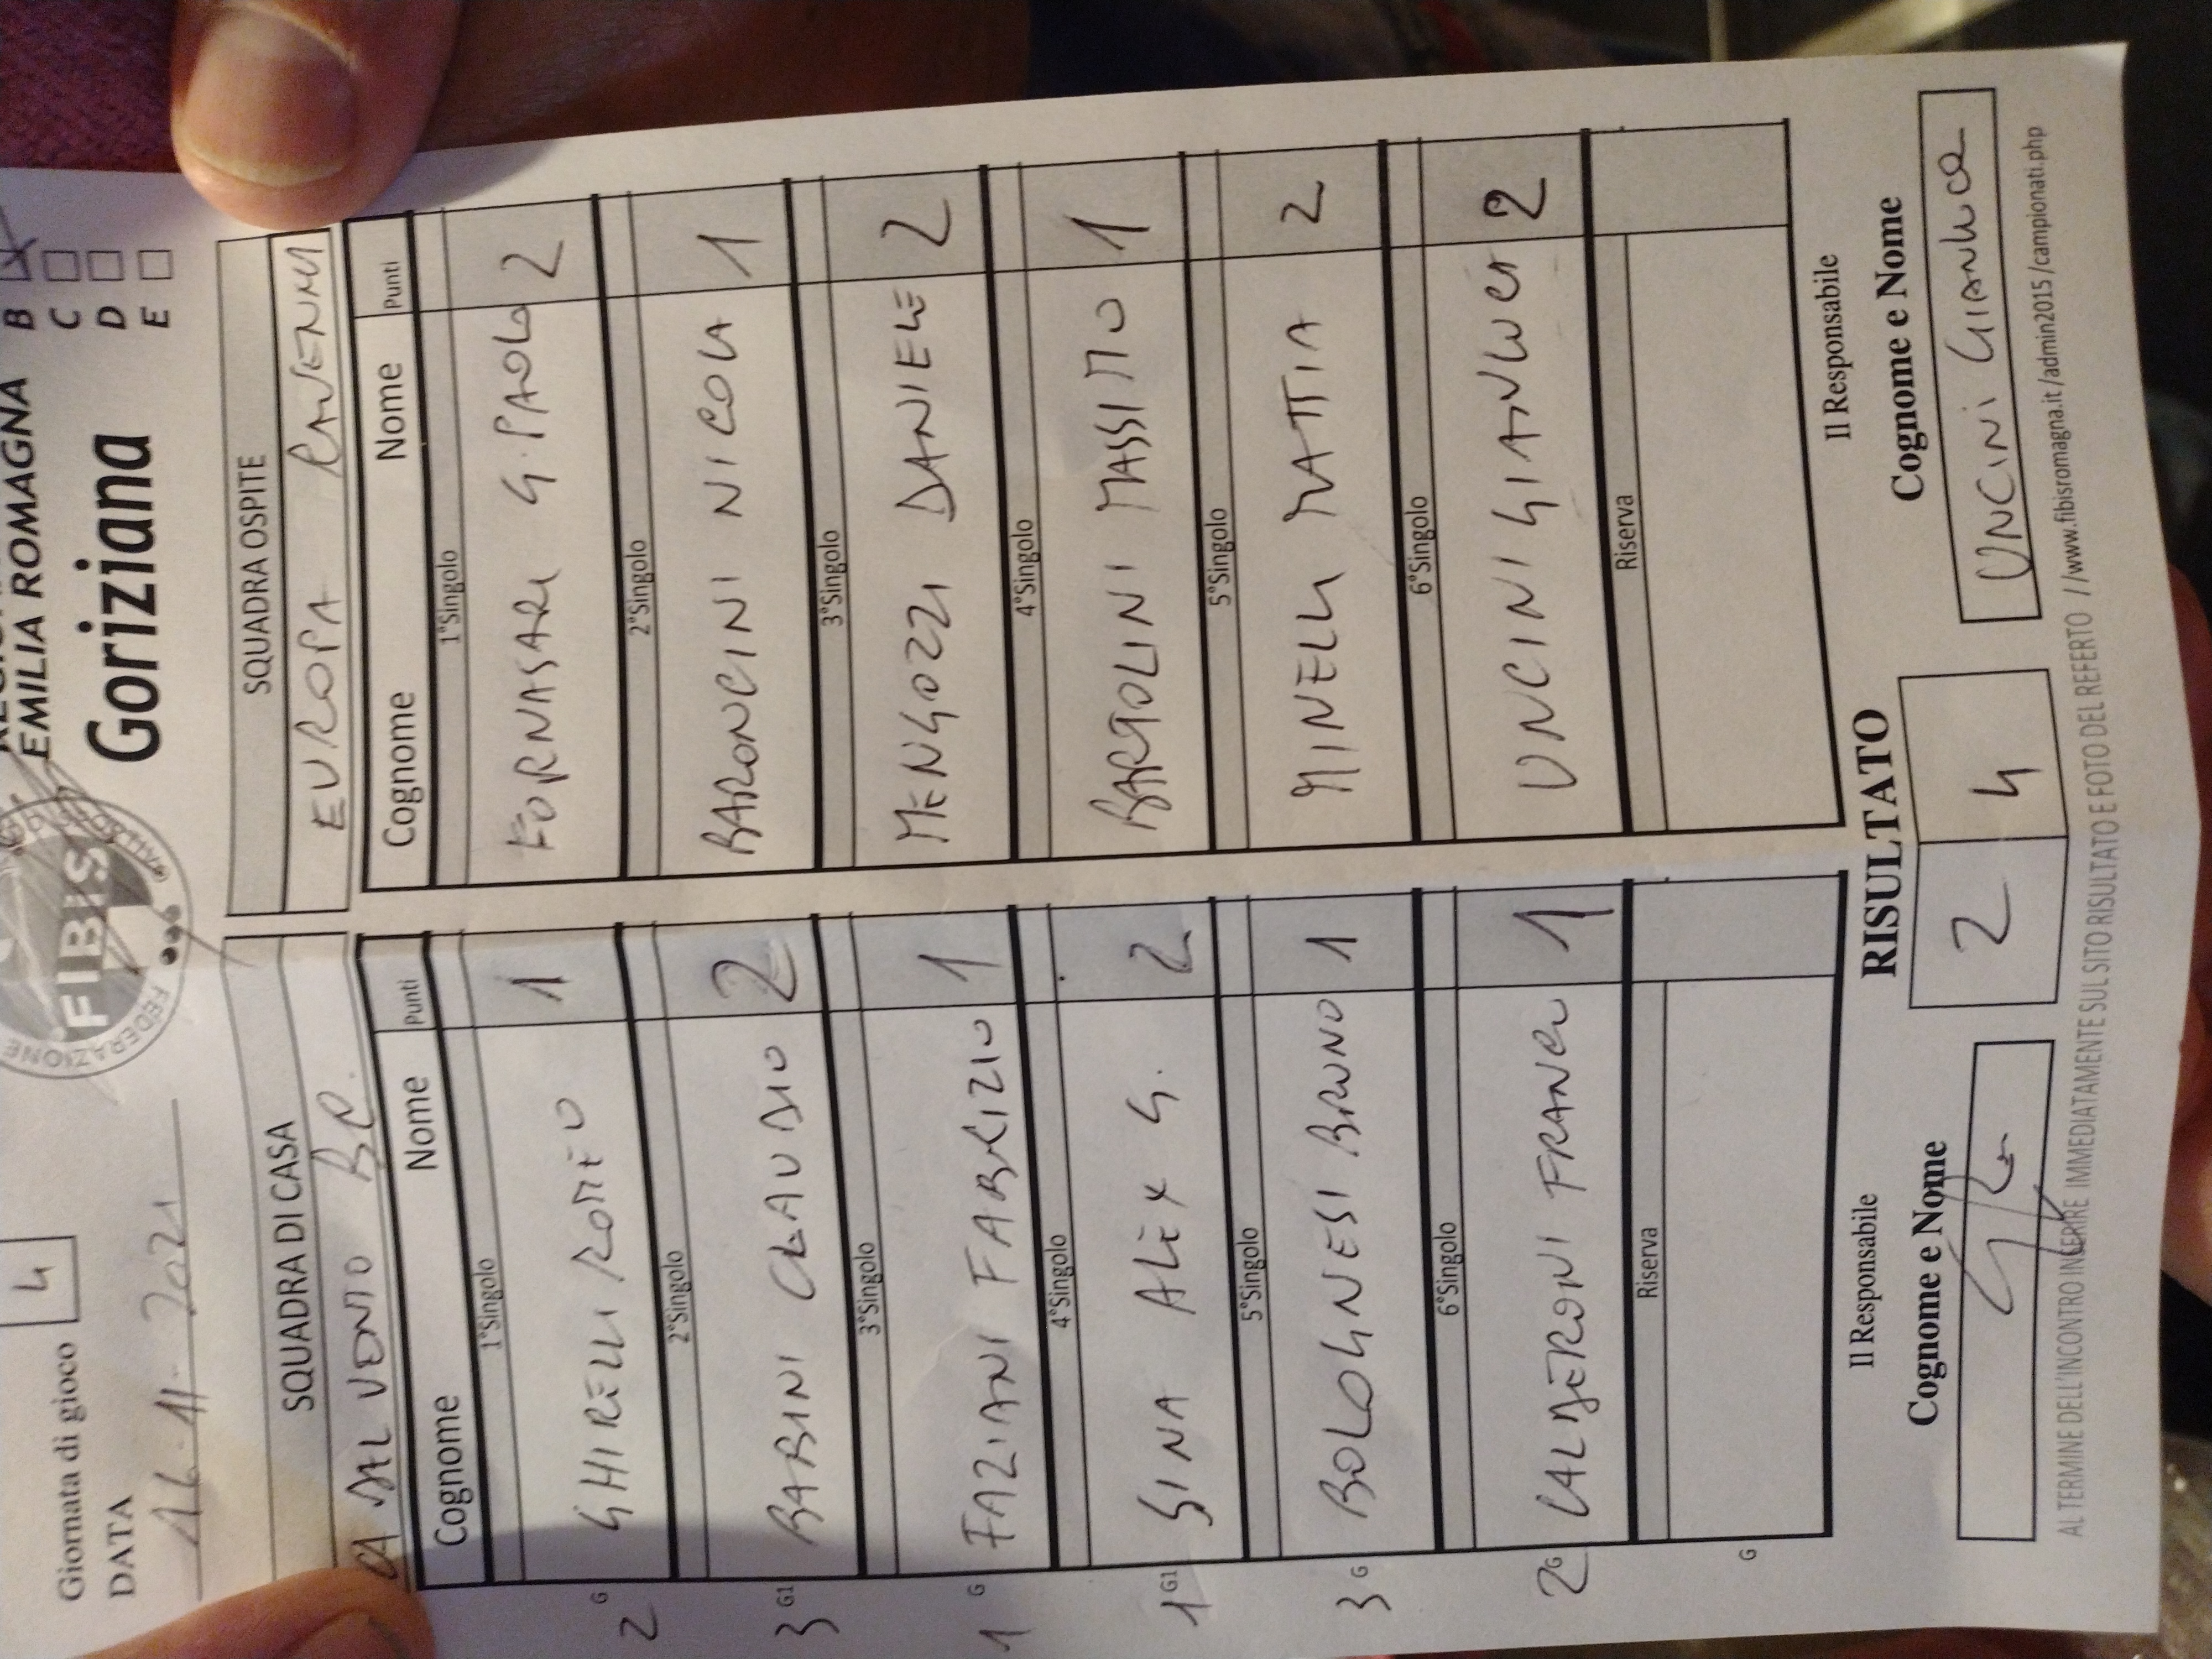 EMILIA ROMAGNA
Goriziana
B
C
D
E
FIBIS
FEDERAZIONE
Giornata di gioco 4
DATA 16-11-2021
SQUADRA DI CASA
CA DAL VENTO B.R.
SQUADRA OSPITE
EUROPA RAVENNA
Cognome Nome Punti
Cognome Nome Punti
1°Singolo
1°Singolo
2 G GHIRELLI ROMEO 1
FORNASARI G.PAOLO 2
2°Singolo
2°Singolo
3 G1 BABINI CLAUDIO 2
BARONCINI NICOLA 1
3°Singolo
3°Singolo
1 G FAZIANI FABRIZIO 1
MENGOZZI DANIELE 2
4°Singolo
4°Singolo
1 G1 GINA ALEX G. 2
BARTOLINI MASSIMO 1
5°Singolo
5°Singolo
3 G BOLOGNESI BRUNO 1
MINELLI MATTIA 2
6°Singolo
6°Singolo
2 G CALDERONI FRANCO 1
UNCINI GIANLUCA 2
Riserva
Riserva
G
Il Responsabile
RISULTATO
Il Responsabile
Cognome e Nome
2 4
Cognome e Nome
UNCINI GIANLUCA
AL TERMINE DELL'INCONTRO INSERIRE IMMEDIATAMENTE SUL SITO RISULTATO E FOTO DEL REFERTO //www.fibisromagna.it/admin2015/campionati.php